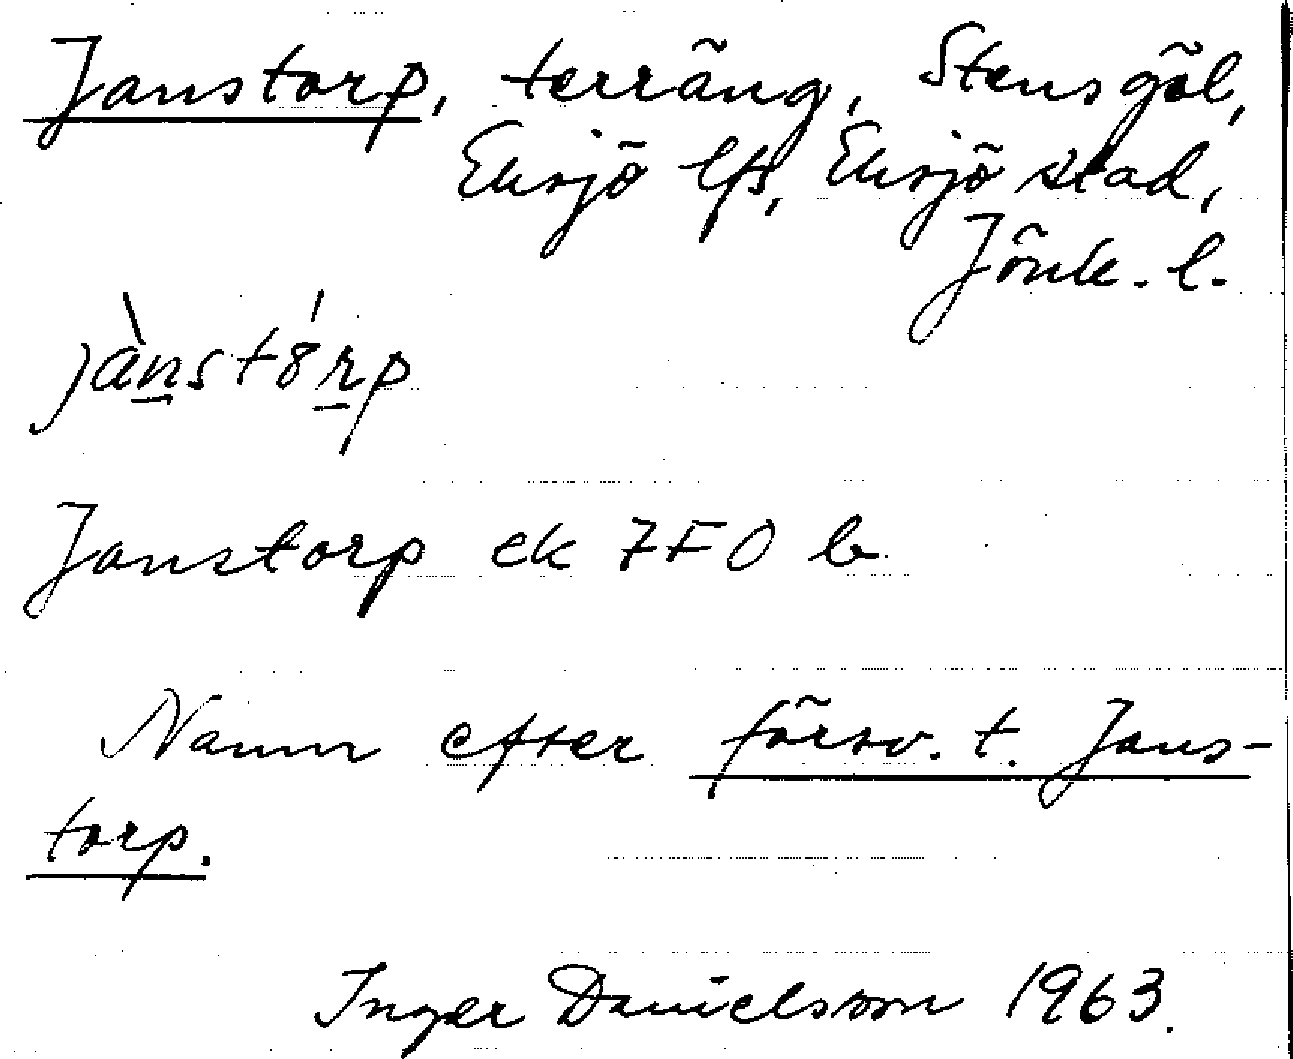 Janstorp, terräng, Stensgöl,
Eksjö lfs, Eksjö stad,
Jönk. l.
jànstó̱rp
Janstorp ek 7F0 b
Namn efter försv. t. Jans-
torp.
Inger Danielsson 1963.